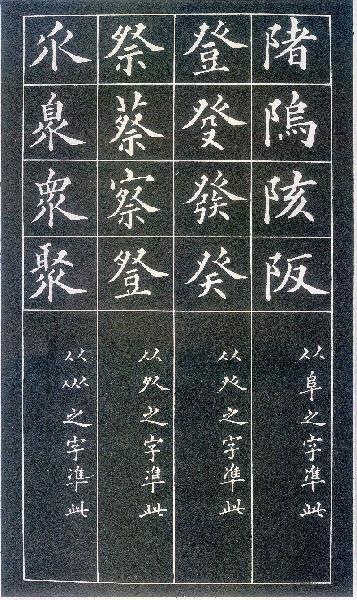 陼隖陔阪
从阜之字準此
登癹發癸
从癶之字準此
祭蔡察豋
从之字準此
乑臮眾聚
从㐺之字準此